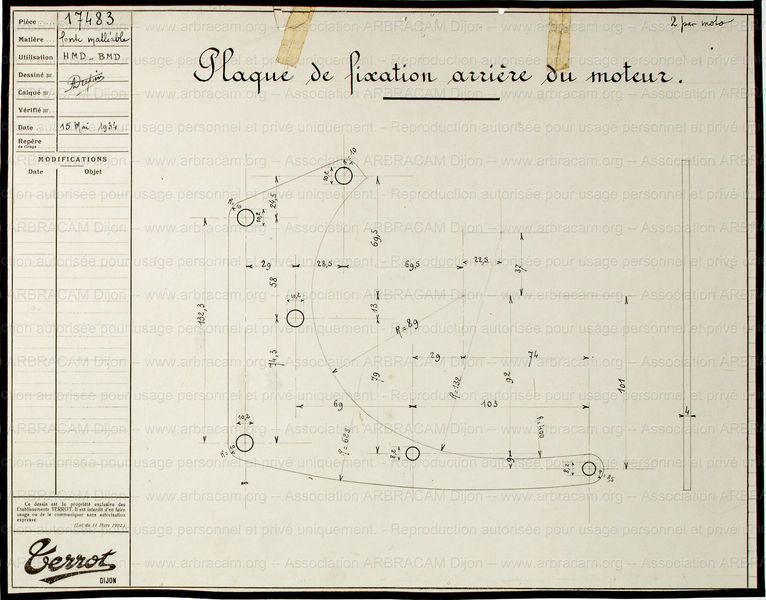 Pièce 17483
Matière fonte malléable
Utilisation HMD - BMD
Dessiné par
Calqué par
Vérifié par
Date 15 Mai 1934
Repère
du tirage
MODIFICATIONS
Date Objet
2 par moto
Plaque de fixation arrière du moteur.
R=10
10,2
24,5
10,2
69,5
29
28,5
69,5
22,5
37
58
132,3
13
10,2
R=89
74,3
79
29
74
R=132
92
101
69
103
10,2
R=625
R=400
4
9,5
Ce dessin est la propriété exclusive des
Etablissements TERROT. Il est interdit d'en faire
usage ou de le communiquer sans autorisation
expresse.
(Loi du 11 Mars 1902.)
Terrot
DIJON
www.arbracam.org -- Association ARBRACAM Dijon -- www.arbracam.org -- Association ARBRACAM Dijon
Reproduction autorisée pour usage personnel et privé uniquement. - Reproduction autorisée pour usage personnel et privé uniquement.